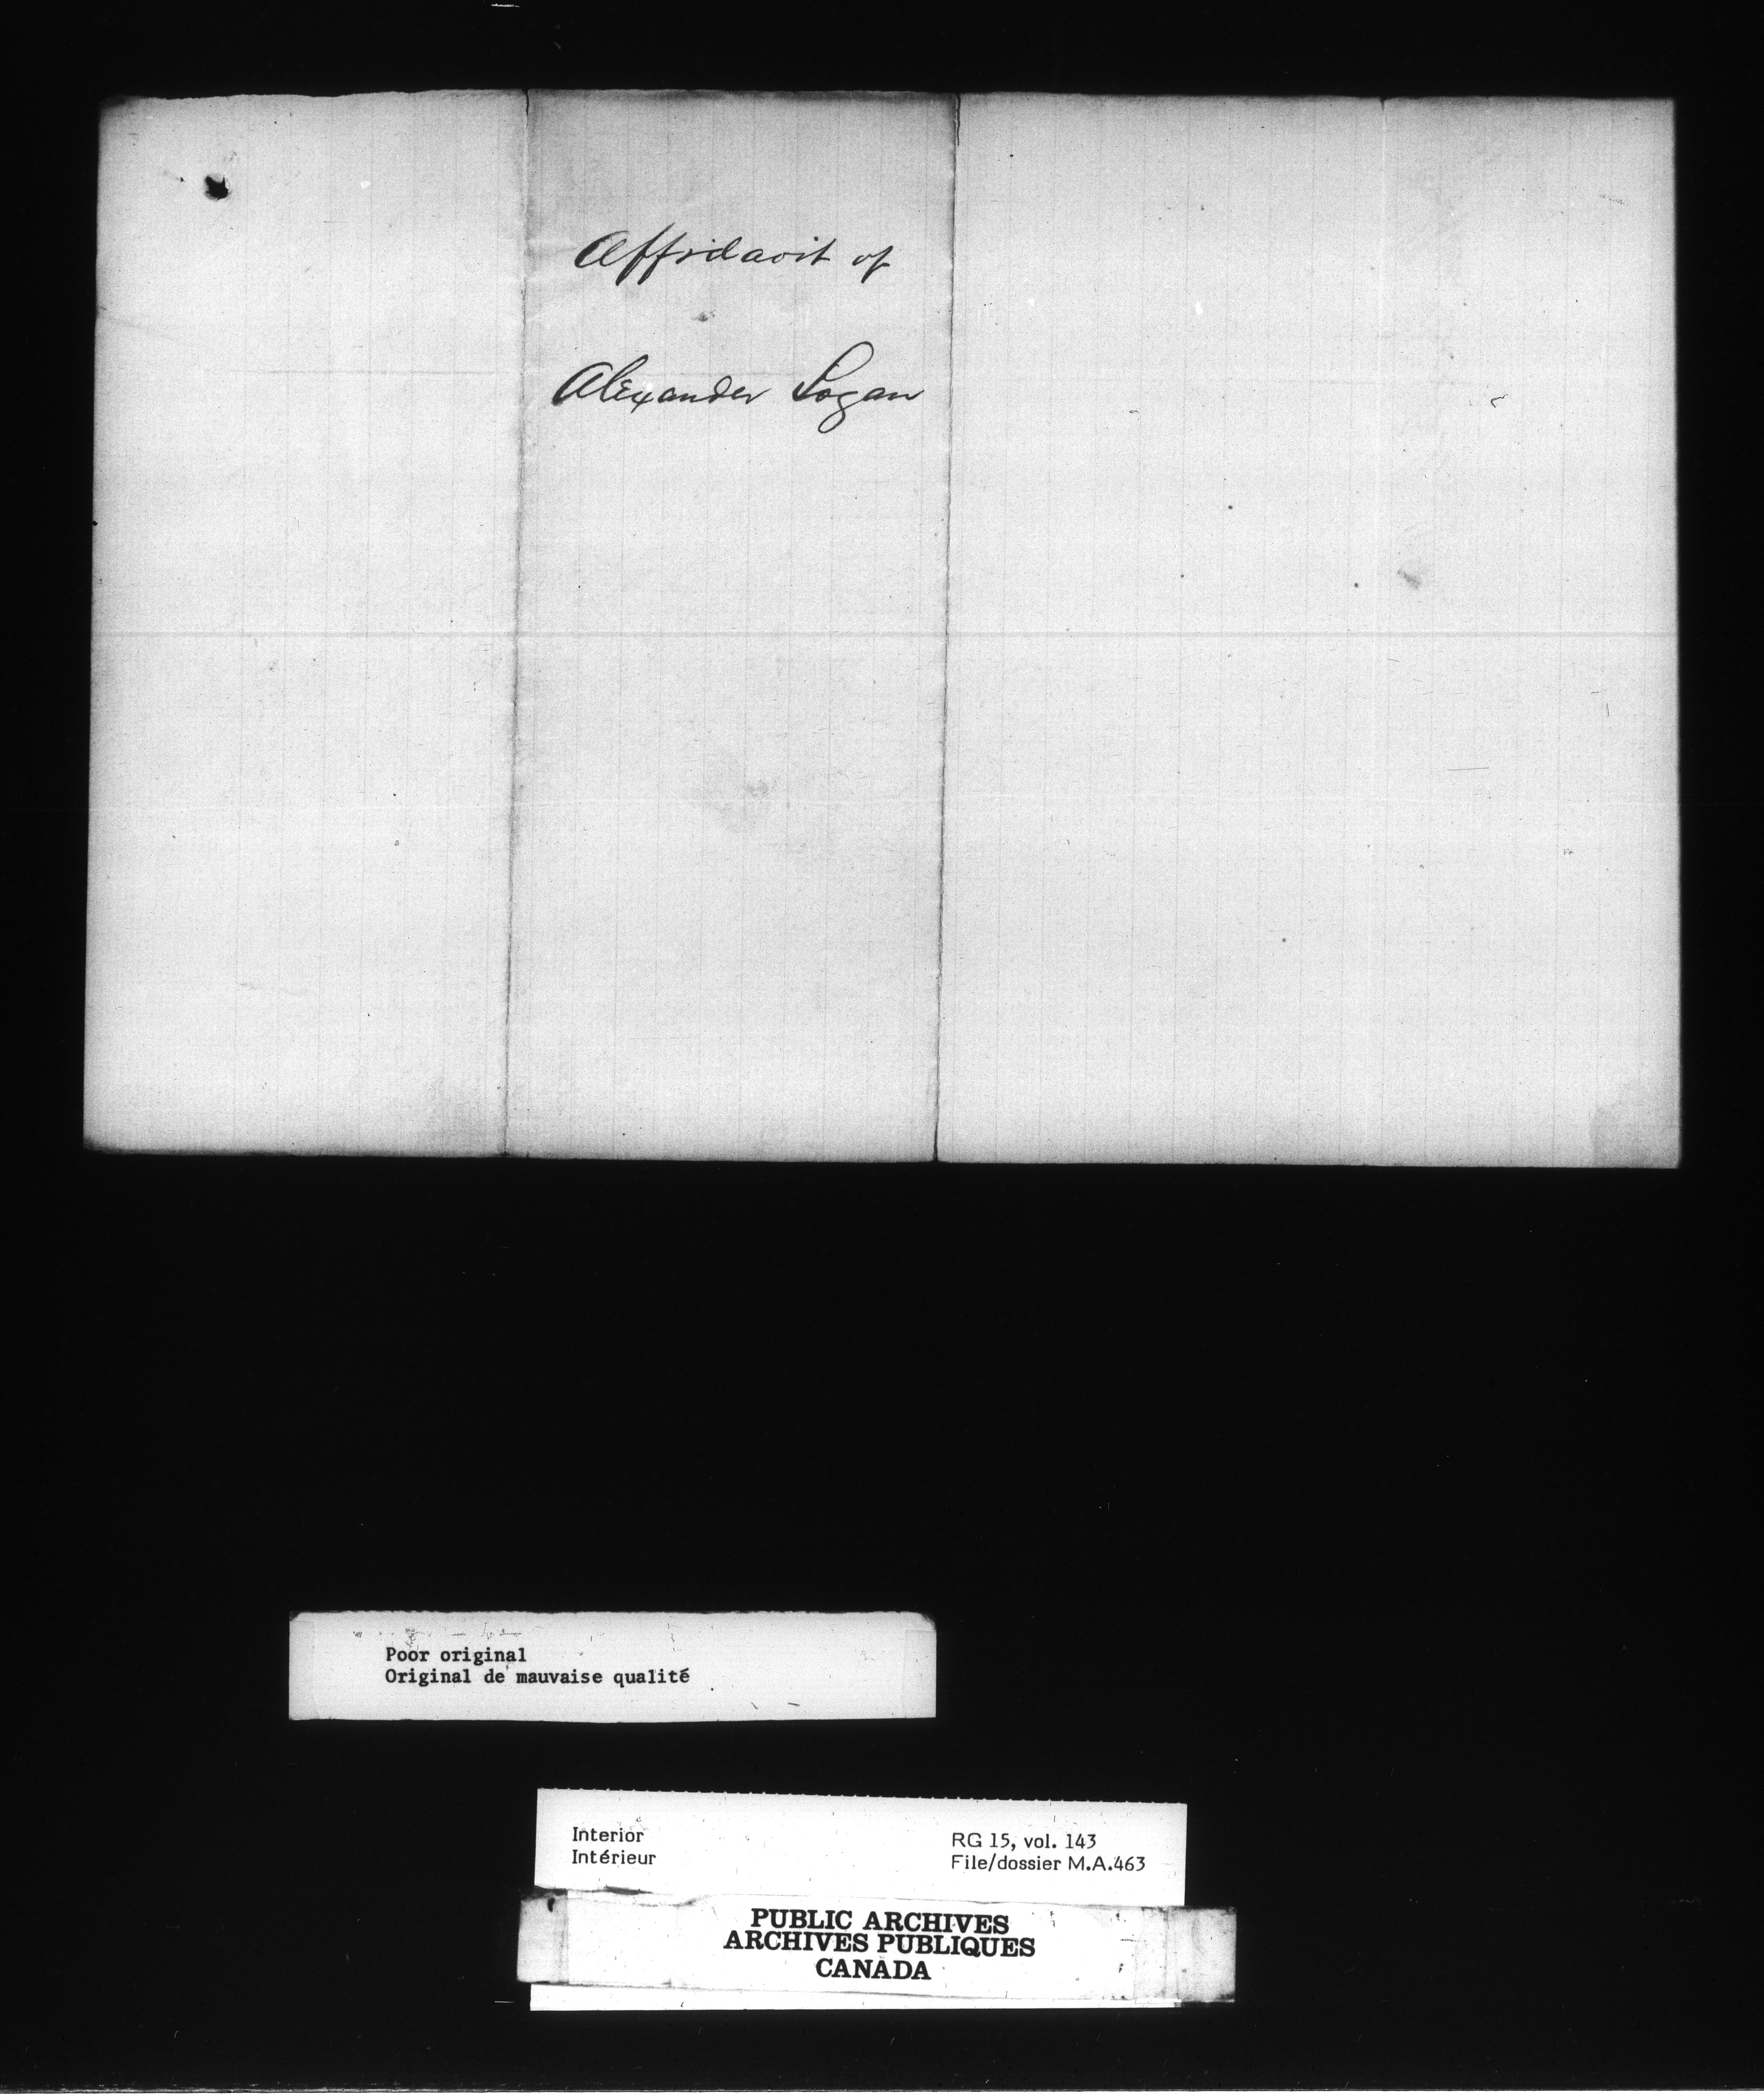 Affidavit of
Alexander Logan
Poor original
Original de mauvaise qualité
Interior
Intérieur
RG 15, vol. 143
File/dossier M.A.463
PUBLIC ARCHIVES
ARCHIVES PUBLIQUES
CANADA